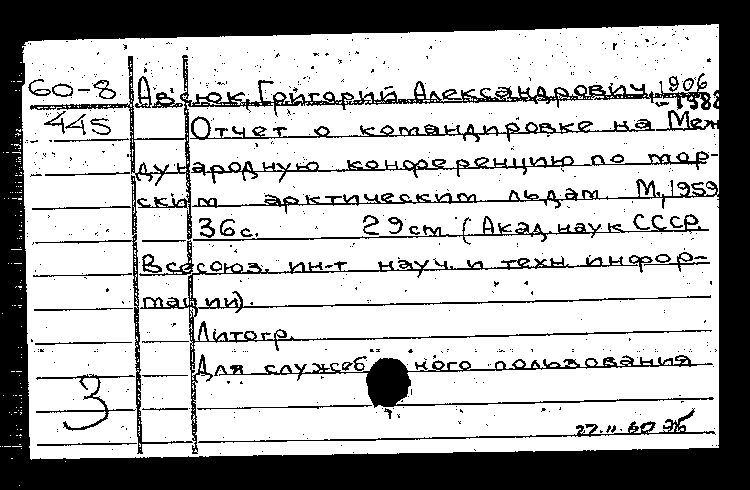 60-8 Авсюк, Григорий Александрович, 1906
-1988
445 Отчет о командировке на Меж
дународную конференцию по мор-
ским арктическим льдам. М., 1959
36 с. 29 см. (Акад. наук СССР.
Всесоюз. ин-т науч. и техн. инфор-
мации).
Литогр.
Для служебного пользования
3
27.II.60